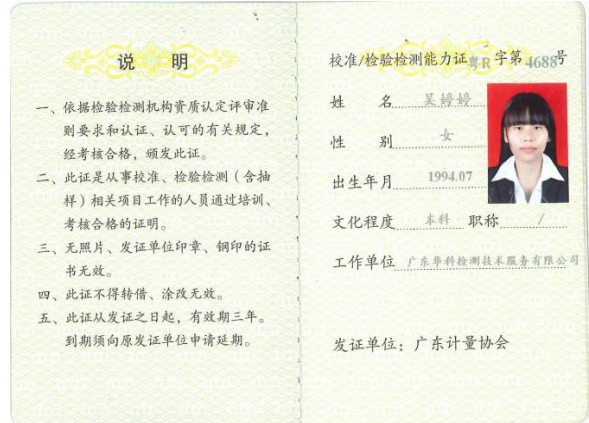 说 明
一、依据检验检测机构资质认定评审准
则要求和认证、认可的有关规定，
经考核合格，颁发此证。
二、此证是从事校准、检验检测（含抽
样）相关项目工作的人员通过培训、
考核合格的证明。
三、无照片、发证单位印章、钢印的证
书无效。
四、此证不得转借、涂改无效。
五、此证从发证之日起，有效期三年。
到期须向原发证单位申请延期。
校准/检验检测能力证粤R字第4688号
姓 名 吴婷婷
性 别 女
出生年月 1994.07
文化程度 本科 职称 /
工作单位 广东华科检测技术服务有限公司
发证单位：广东计量协会